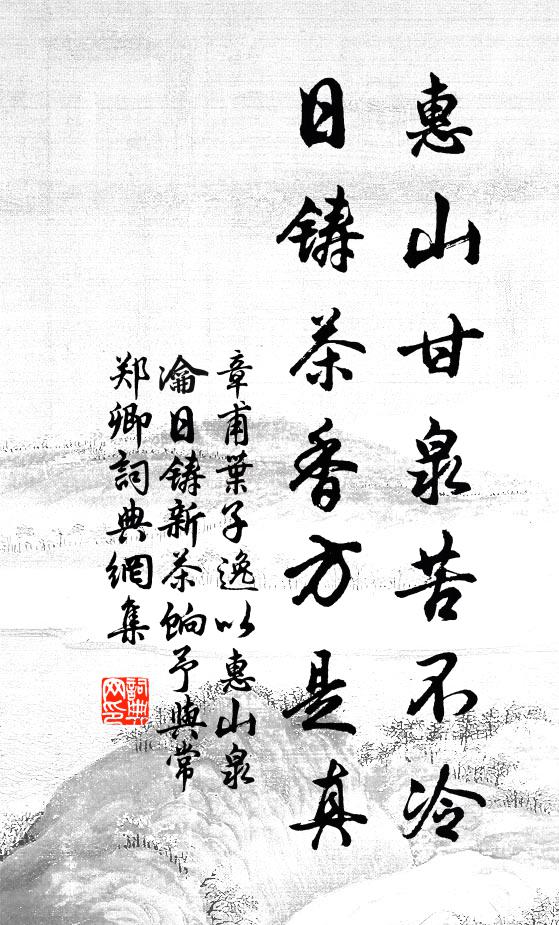 惠山甘泉苦不冷
日铸茶香方是真
章甫葉子逸以惠山泉
瀹日铸新茶餉予與常
郑卿詞典網集
詞典
网印